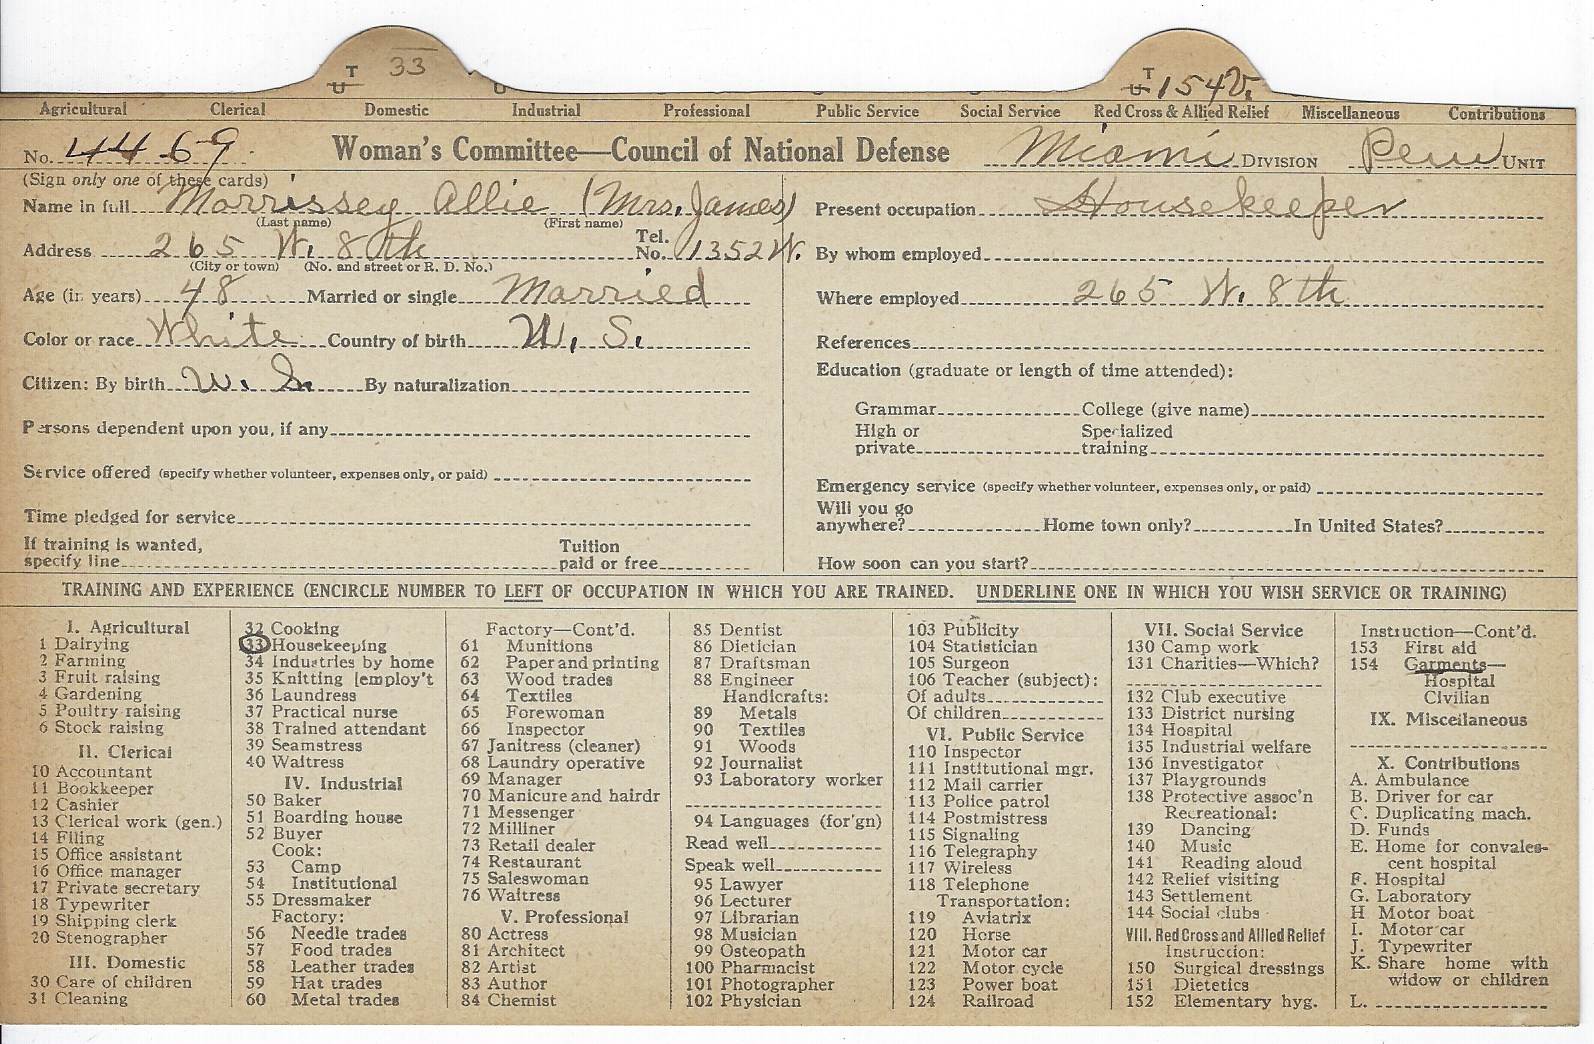 T U 33
T U 154 V.
Agricultural Clerical Domestic Industrial Professional Public Service Social Service Red Cross & Allied Relief Miscellaneous Contributions
No. 4469 Woman's Committee—Council of National Defense Miami DIVISION Peru UNIT
(Sign only one of these cards)
Name in full Morrissey Allie (Mrs. James)
(Last name) (First name)
Address 265 W. 8th Tel. No. 1352W.
(City or town) (No. and street or R. D. No.)
Age (in years) 48 Married or single Married
Color or race White Country of birth U. S.
Citizen: By birth U. S. By naturalization
Persons dependent upon you, if any
Service offered (specify whether volunteer, expenses only, or paid)
Time pledged for service
If training is wanted,
specify line Tuition paid or free
Present occupation Housekeeper
By whom employed
Where employed 265 W. 8th
References
Education (graduate or length of time attended):
Grammar College (give name)
High or private Specialized training
Emergency service (specify whether volunteer, expenses only, or paid)
Will you go
anywhere? Home town only? In United States?
How soon can you start?
TRAINING AND EXPERIENCE (ENCIRCLE NUMBER TO LEFT OF OCCUPATION IN WHICH YOU ARE TRAINED. UNDERLINE ONE IN WHICH YOU WISH SERVICE OR TRAINING)
I. Agricultural
1 Dairying
2 Farming
3 Fruit raising
4 Gardening
5 Poultry raising
6 Stock raising
II. Clerical
10 Accountant
11 Bookkeeper
12 Cashier
13 Clerical work (gen.)
14 Filing
15 Office assistant
16 Office manager
17 Private secretary
18 Typewriter
19 Shipping clerk
20 Stenographer
III. Domestic
30 Care of children
31 Cleaning
32 Cooking
33 Housekeeping
34 Industries by home
35 Knitting [employ't
36 Laundress
37 Practical nurse
38 Trained attendant
39 Seamstress
40 Waitress
IV. Industrial
50 Baker
51 Boarding house
52 Buyer
Cook:
53 Camp
54 Institutional
55 Dressmaker
Factory:
56 Needle trades
57 Food trades
58 Leather trades
59 Hat trades
60 Metal trades
Factory—Cont'd.
61 Munitions
62 Paper and printing
63 Wood trades
64 Textiles
65 Forewoman
66 Inspector
67 Janitress (cleaner)
68 Laundry operative
69 Manager
70 Manicure and hairdr
71 Messenger
72 Milliner
73 Retail dealer
74 Restaurant
75 Saleswoman
76 Waitress
V. Professional
80 Actress
81 Architect
82 Artist
83 Author
84 Chemist
85 Dentist
86 Dietician
87 Draftsman
88 Engineer
Handicrafts:
89 Metals
90 Textiles
91 Woods
92 Journalist
93 Laboratory worker
94 Languages (for'gn)
Read well
Speak well
95 Lawyer
96 Lecturer
97 Librarian
98 Musician
99 Osteopath
100 Pharmacist
101 Photographer
102 Physician
103 Publicity
104 Statistician
105 Surgeon
106 Teacher (subject):
Of adults
Of children
VI. Public Service
110 Inspector
111 Institutional mgr.
112 Mail carrier
113 Police patrol
114 Postmistress
115 Signaling
116 Telegraphy
117 Wireless
118 Telephone
Transportation:
119 Aviatrix
120 Horse
121 Motor car
122 Motor cycle
123 Power boat
124 Railroad
VII. Social Service
130 Camp work
131 Charities—Which?
132 Club executive
133 District nursing
134 Hospital
135 Industrial welfare
136 Investigator
137 Playgrounds
138 Protective assoc'n
Recreational:
139 Dancing
140 Music
141 Reading aloud
142 Relief visiting
143 Settlement
144 Social clubs
VIII. Red Cross and Allied Relief
Instruction:
150 Surgical dressings
151 Dietetics
152 Elementary hyg.
Instruction—Cont'd.
153 First aid
154 Garments—
Hospital
Civilian
IX. Miscellaneous
X. Contributions
A. Ambulance
B. Driver for car
C. Duplicating mach.
D. Funds
E. Home for convales-
cent hospital
F. Hospital
G. Laboratory
H Motor boat
I. Motor car
J. Typewriter
K. Share home with
widow or children
L.